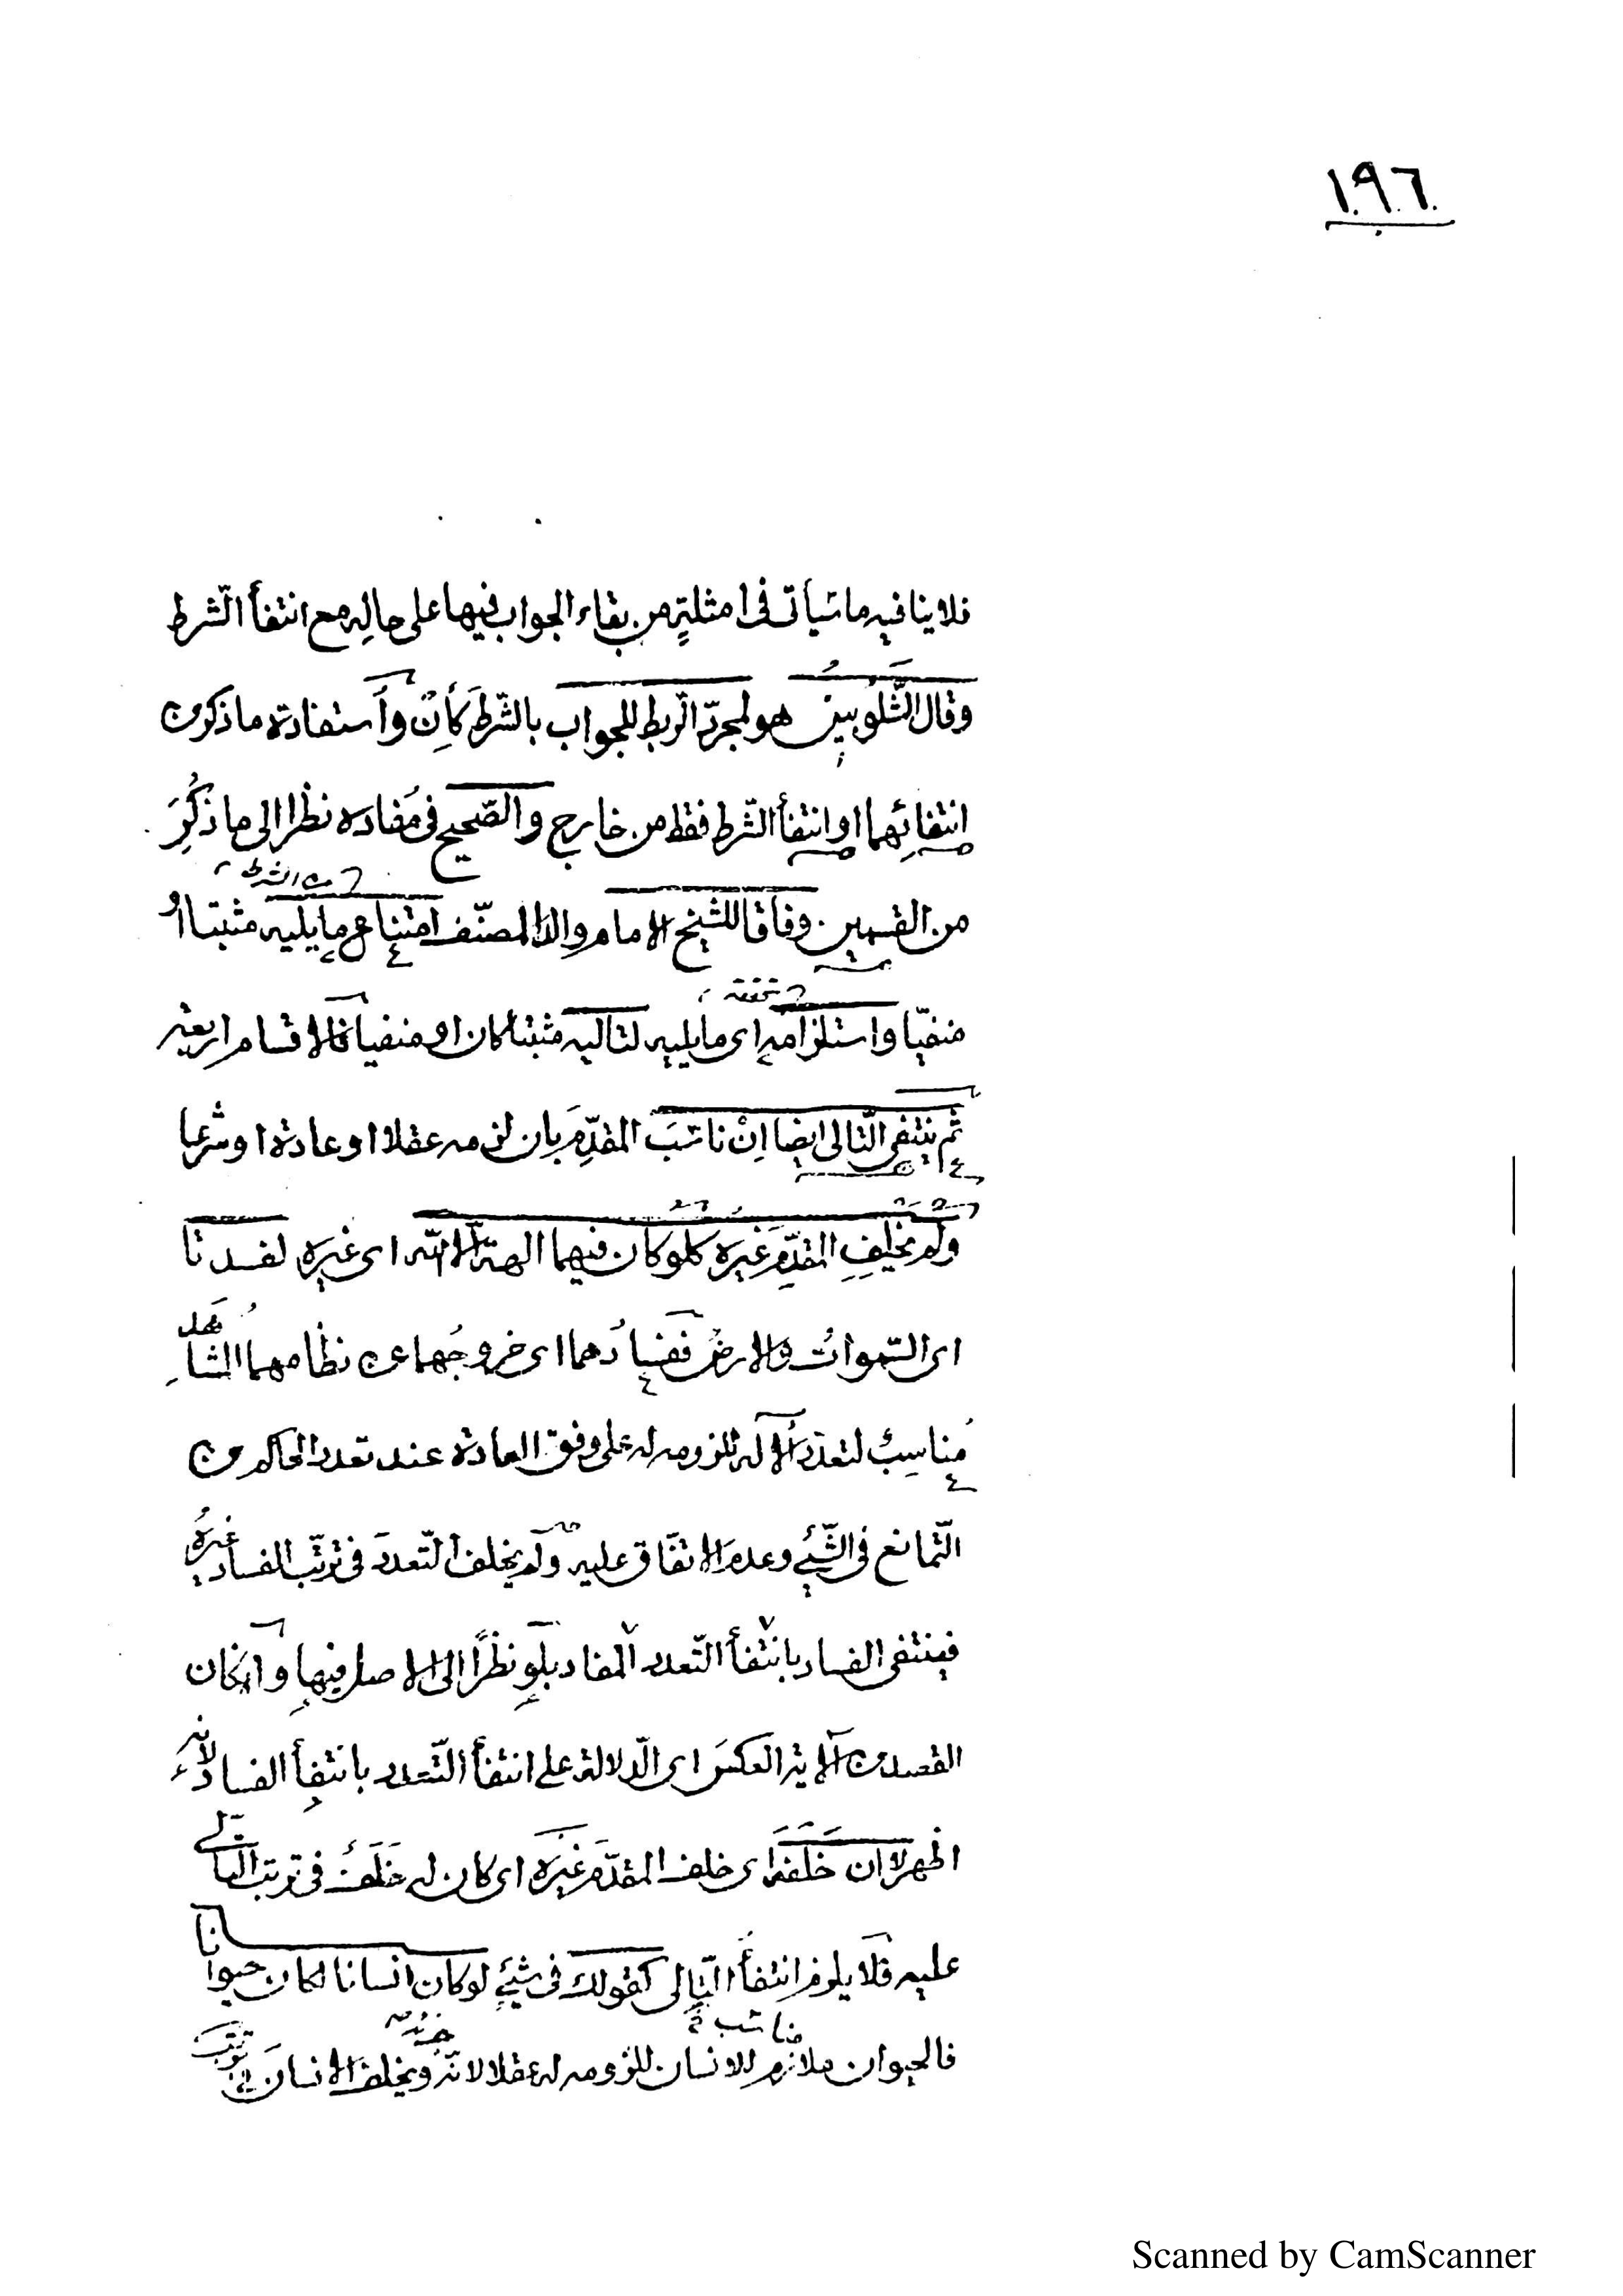 ١٩٦
فلا ينافيه ما سَيأتى فى امثلةٍ من بقاء الجواب فيها على حالِه مع انتفأ الشّرط
وقال الشَّلَوبينُ هو لمجرّد الرّبط للجواب بالشّرط كَأِنْ وأستفادة ما ذكر من
انتفائِهما او انتفأ الشّرط فقط من خارج والصّحيح فى مُفاده نظرا الى ما ذُكِرَ
من القسمين وفاقا للشيخ الامام والدِ المصنّف امتناع ما يليه مثبتا اوُ
من الشرط
منفيّا واستلزامه اى ما يليه لتاليه مثبتا كان او منفيا فالاقسام اربعة
تحققه
ثم ينتفى التّالى ايضا اِنْ ناسَبَ المقدّمَ بان لزمه عقلا او عادة او شرعا
ولم يخلِفِ المقدِّمَ غيرُه كلو كان فيهما الهةٌ الا الله اى غيره لفسدتا
اى السّموات والارضُ ففسادُهما اى خروجُهما عن نظامهما المُشاهَد
مُناسِبٌ لتعدّد الاله للزومه له على وفق العادة عند تعدد الحاكم من
التّمانع فى الشّيْئِ وعدم الاتفاق عليه ولم يخلف التّعددَ فى ترتّب الفساد غيرُهُ
فينتفى الفساد بانتفأ التّعدد المفاد بلو نظرًا الى الاصل فيها وان كان
القصد من الاية العكسَ اى الدّلالة على انتفأ التّعدد بانتفأ الفساد لانّه
اظهر لا ان خَلَفَه اى خلف المقدّمَ غيرُه اى كان له خَلَفٌ فى ترتب التالى
عليه فلا يلزم انتفأُ التّالى كقولك فى شيئٍ لو كان انسانا لكان حيوانا
مناسب
فالحيوان ملازم للانسان للزومه له عقلا لانّه جزئه ويخلف الانسانَ فى ترتّبه